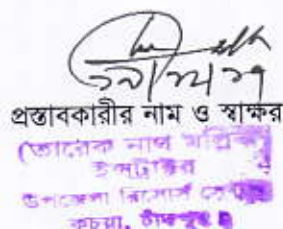 প্রস্তাবকারীর নাম ও স্বাক্ষর
(তারেক নাথ মল্লিক)
ইন্সট্রাক্টর
উপজেলা রিসোর্স সেন্টার
কচুয়া, চাঁদপুর।